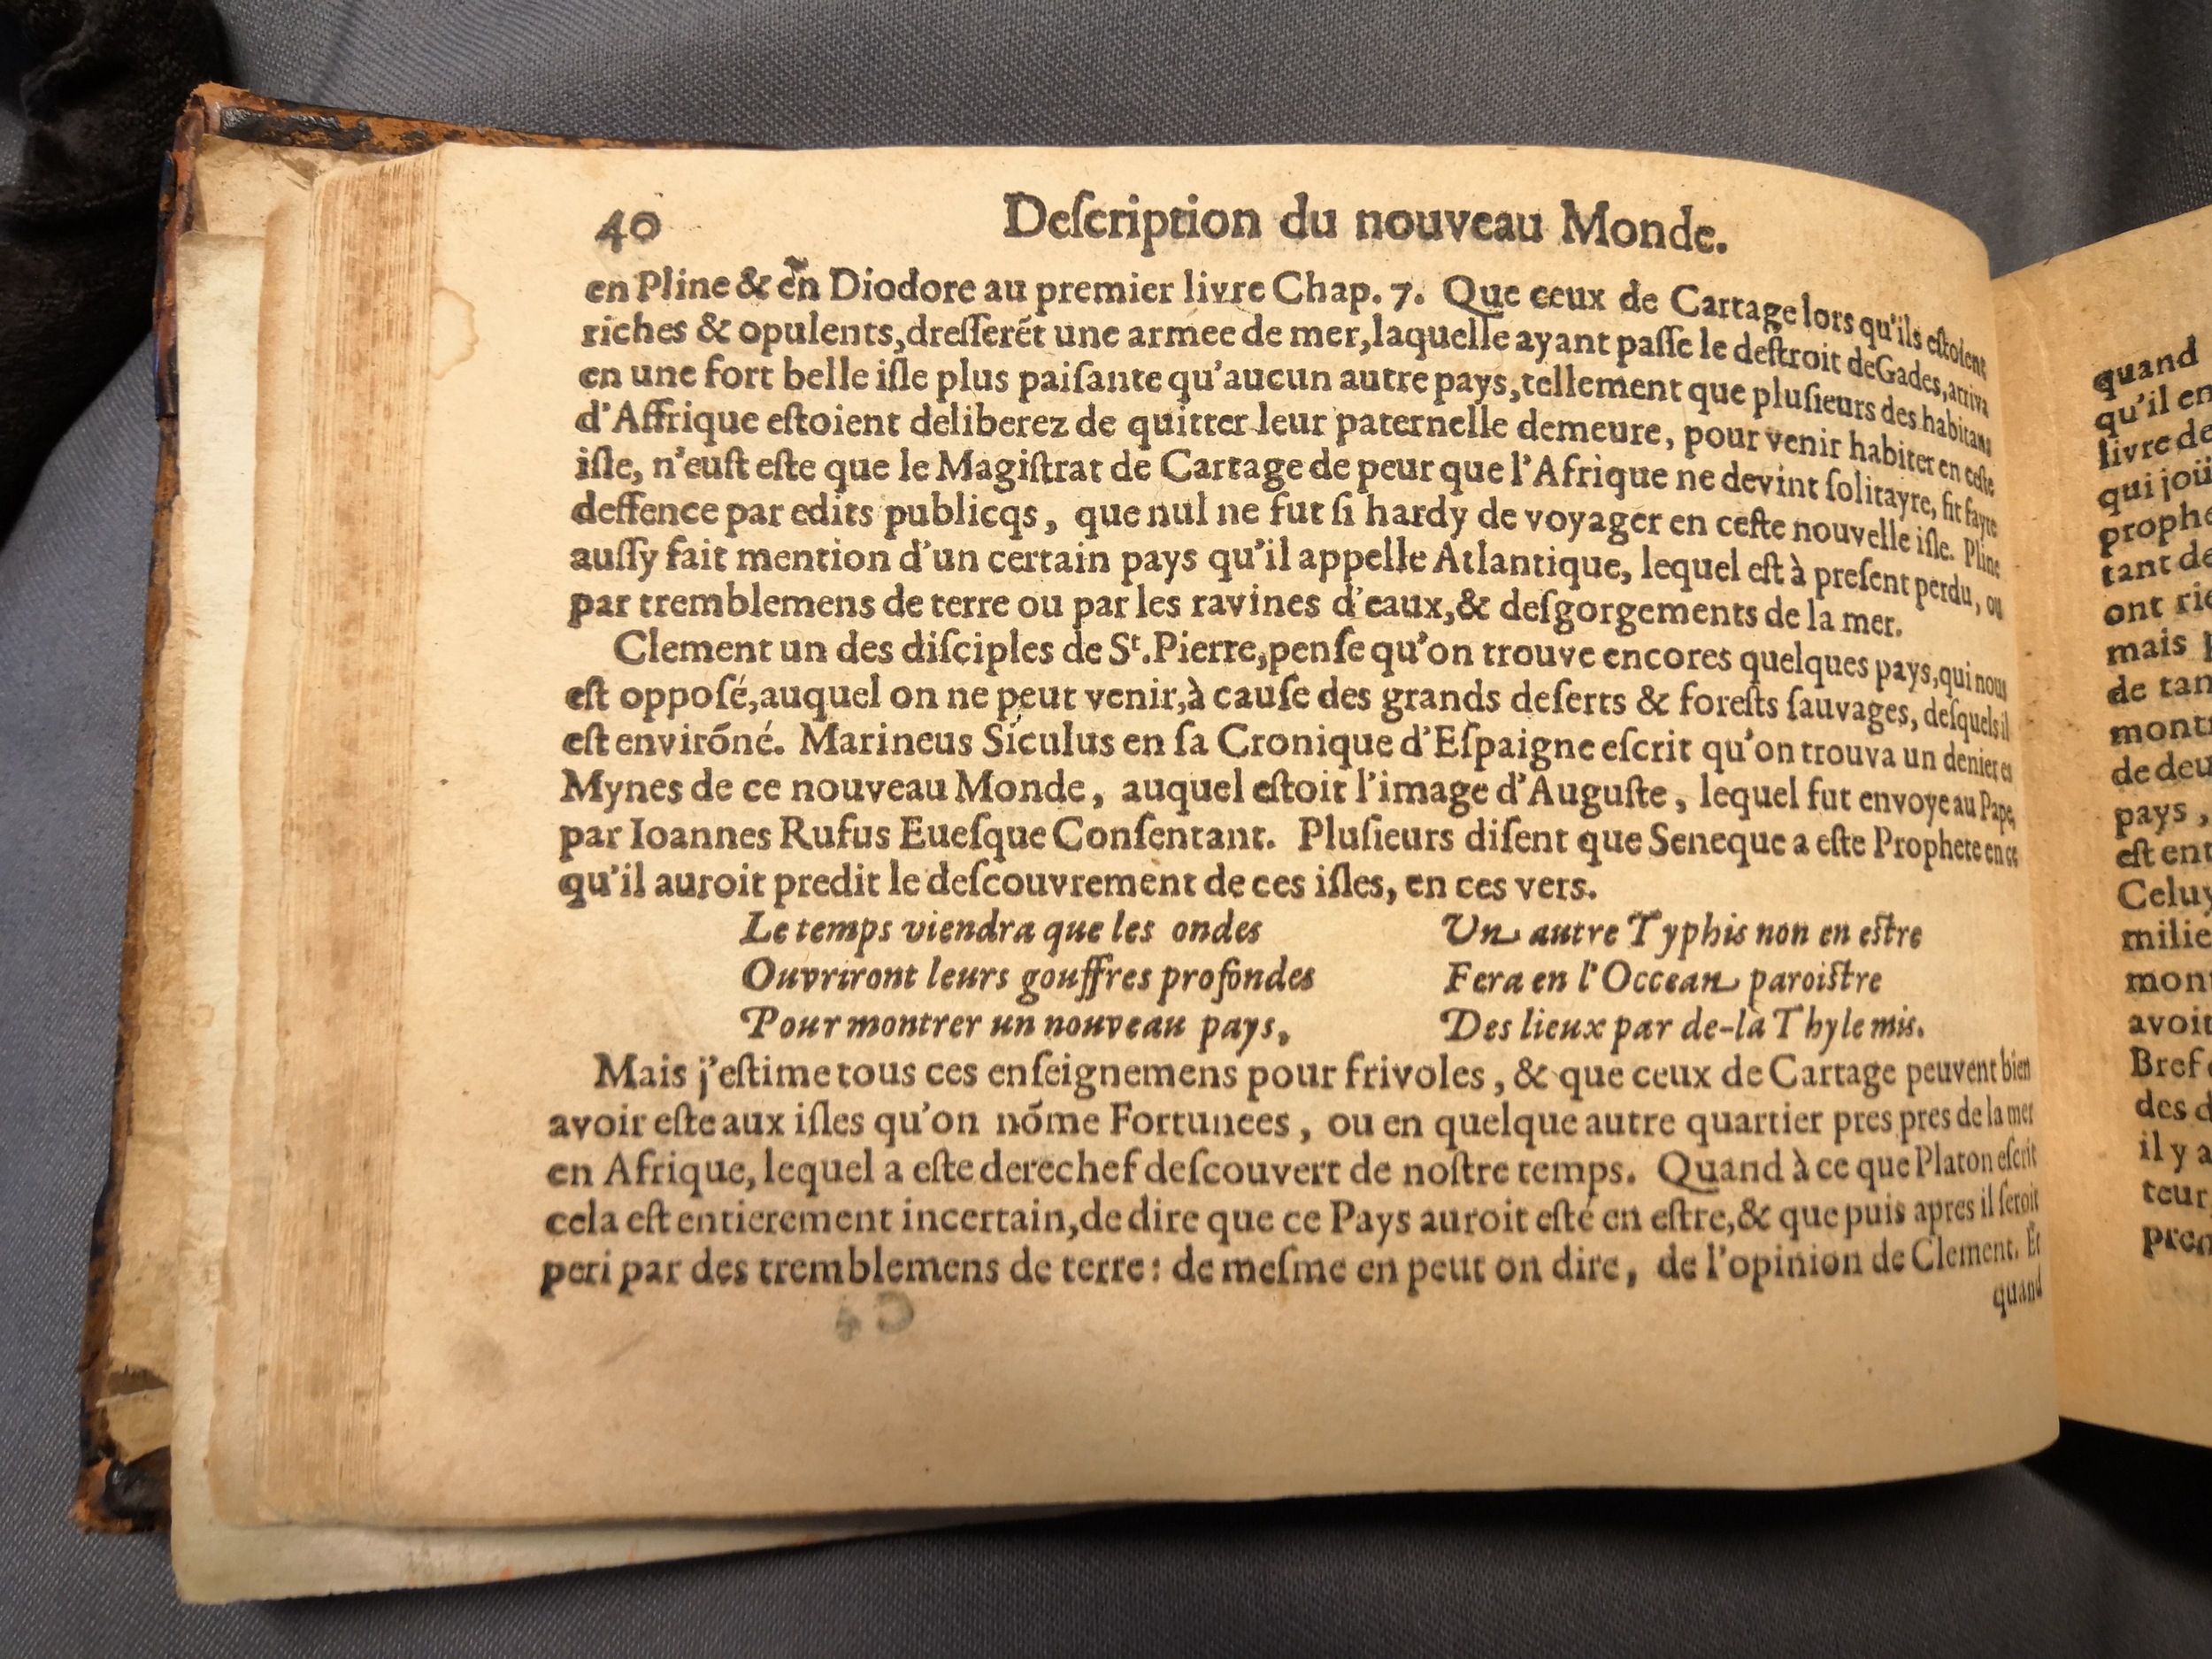 40 Deſcription du nouveau Monde.
en Pline & en Diodore au premier livre Chap. 7. Que ceux de Cartage lors qu'ils eſtoient
riches & opulents, dreſſerẽt une armee de mer, laquelle ayant paſſe le deſtroit de Gades, arriva
en une fort belle iſle plus paiſante qu'aucun autre pays, tellement que pluſieurs des habitans
d'Affrique eſtoient deliberez de quitter leur paternelle demeure, pour venir habiter en ceſte
iſle, n'euſt eſte que le Magiſtrat de Cartage de peur que l'Afrique ne devint ſolitayre, fit fayre
deffence par edits publicqs, que nul ne fut ſi hardy de voyager en ceſte nouvelle iſle. Pline
auſſy fait mention d'un certain pays qu'il appelle Atlantique, lequel eſt à preſent perdu, ou
par tremblemens de terre ou par les ravines d'eaux, & deſgorgements de la mer.
Clement un des diſciples de St. Pierre, penſe qu'on trouve encores quelques pays, qui nous
eſt oppoſé, auquel on ne peut venir, à cauſe des grands deſerts & foreſts ſauvages, deſquels il
eſt envirõné. Marineus Siculus en ſa Cronique d'Eſpaigne eſcrit qu'on trouva un denier es
Mynes de ce nouveau Monde, auquel eſtoit l'image d'Auguſte, lequel fut envoye au Pape,
par Ioannes Rufus Eueſque Conſentant. Pluſieurs diſent que Seneque a eſte Prophete en ce
qu'il auroit predit le deſcouvrement de ces iſles, en ces vers.
Le temps viendra que les ondes
Ouvriront leurs gouffres profondes
Pour montrer un nouveau pays,
Un autre Typhis non en eſtre
Fera en l'Occean paroiſtre
Des lieux par de-là Thyle mis.
Mais j'eſtime tous ces enſeignemens pour frivoles, & que ceux de Cartage peuvent bien
avoir eſte aux iſles qu'on nõme Fortunees, ou en quelque autre quartier pres pres de la mer
en Afrique, lequel a eſte derechef deſcouvert de noſtre temps. Quand à ce que Platon eſcrit
cela eſt entierement incertain, de dire que ce Pays auroit eſté en eſtre, & que puis apres il ſeroit
peri par des tremblemens de terre: de meſme en peut on dire, de l'opinion de Clement. Et
quand
quand
qu'il en
livre de
qui joü
prophe
tant de
ont rie
mais
de tan
mont
de deu
pays,
eſt ent
Celuy
milie
mon
avoit
Bref
des d
il y a
teur
pren